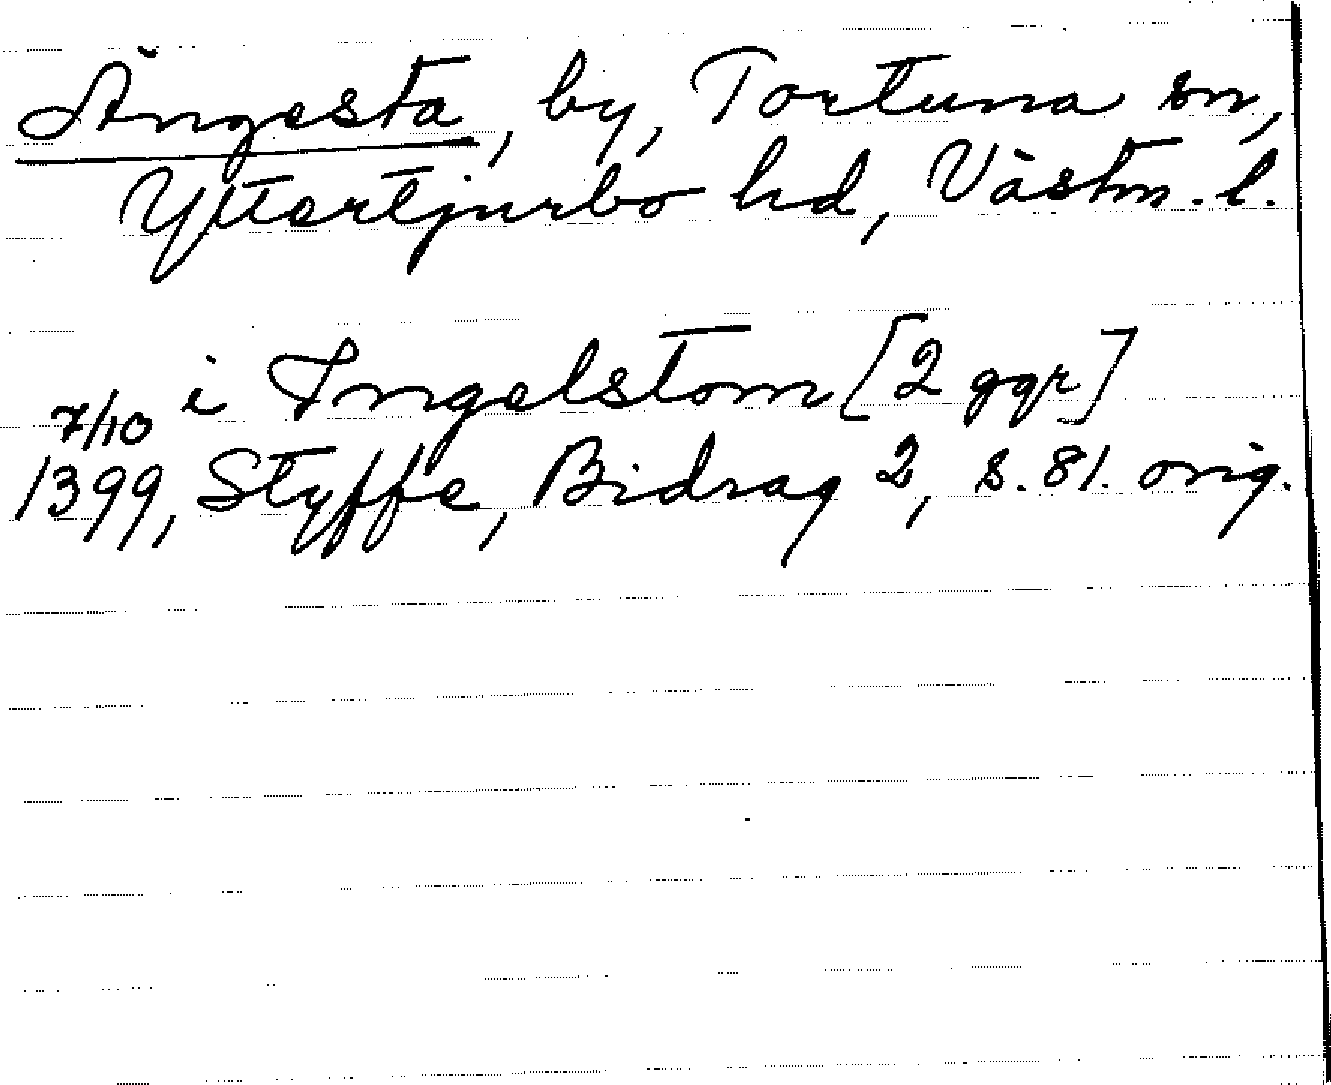 Ängesta, by, Tortuna sn,
Yttertjurbo hd, Västm. l.
i Ingelstom [2 ggr]
7/10
1399, Styffe, Bidrag 2, s. 81. orig.